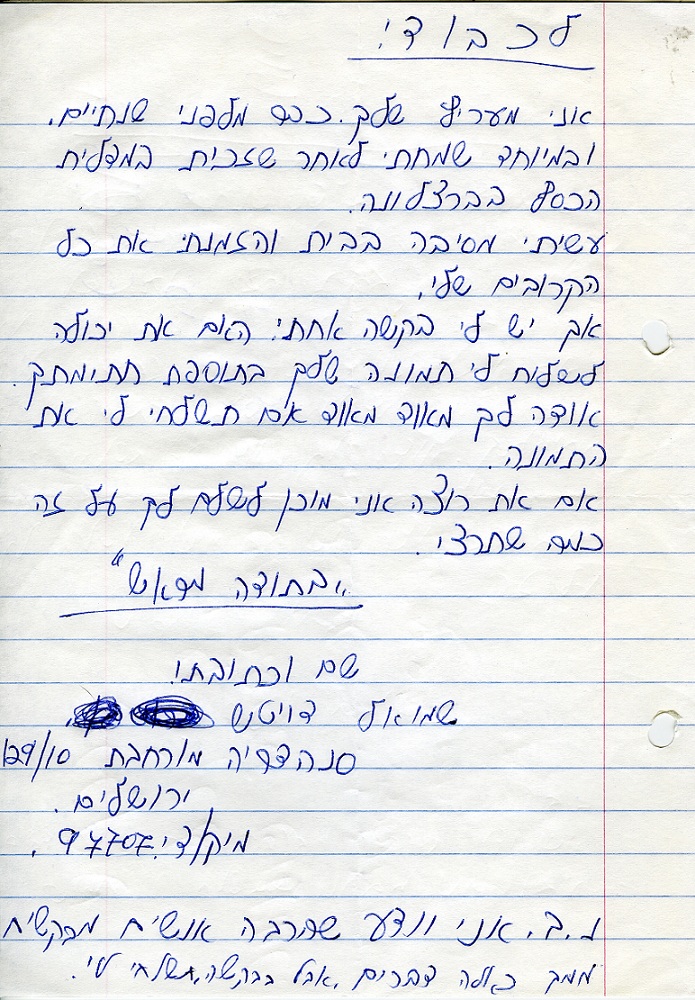 לכבוד:
אני מעריץ שלך. כבר מלפני שנתיים.
ובמיוחד שמחתי לאחר שזכית במדלית
הכסף בברצלונה.
עשיתי מסיבה בבית והזמנתי את כל
הקרובים שלי.
אך יש לי בקשה אחת: האם את יכולה
לשלוח לי תמונה שלך בתוספת חתימתך.
אודה לך מאוד מאוד אם תשלחי לי את
התמונה.
אם את רוצה אני מוכן לשלם לך על זה
כמה שתרצי.
"בתודה מראש"
שם וכתובתי:
שמואל דויטש
סנהדריה מורחבת 129/10
ירושלים.
מיקוד: 97707.
נ.ב. אני יודע שהרבה אנשים מבקשים
ממך כאלה דברים, אבל בבקשה, תשלחי לי.